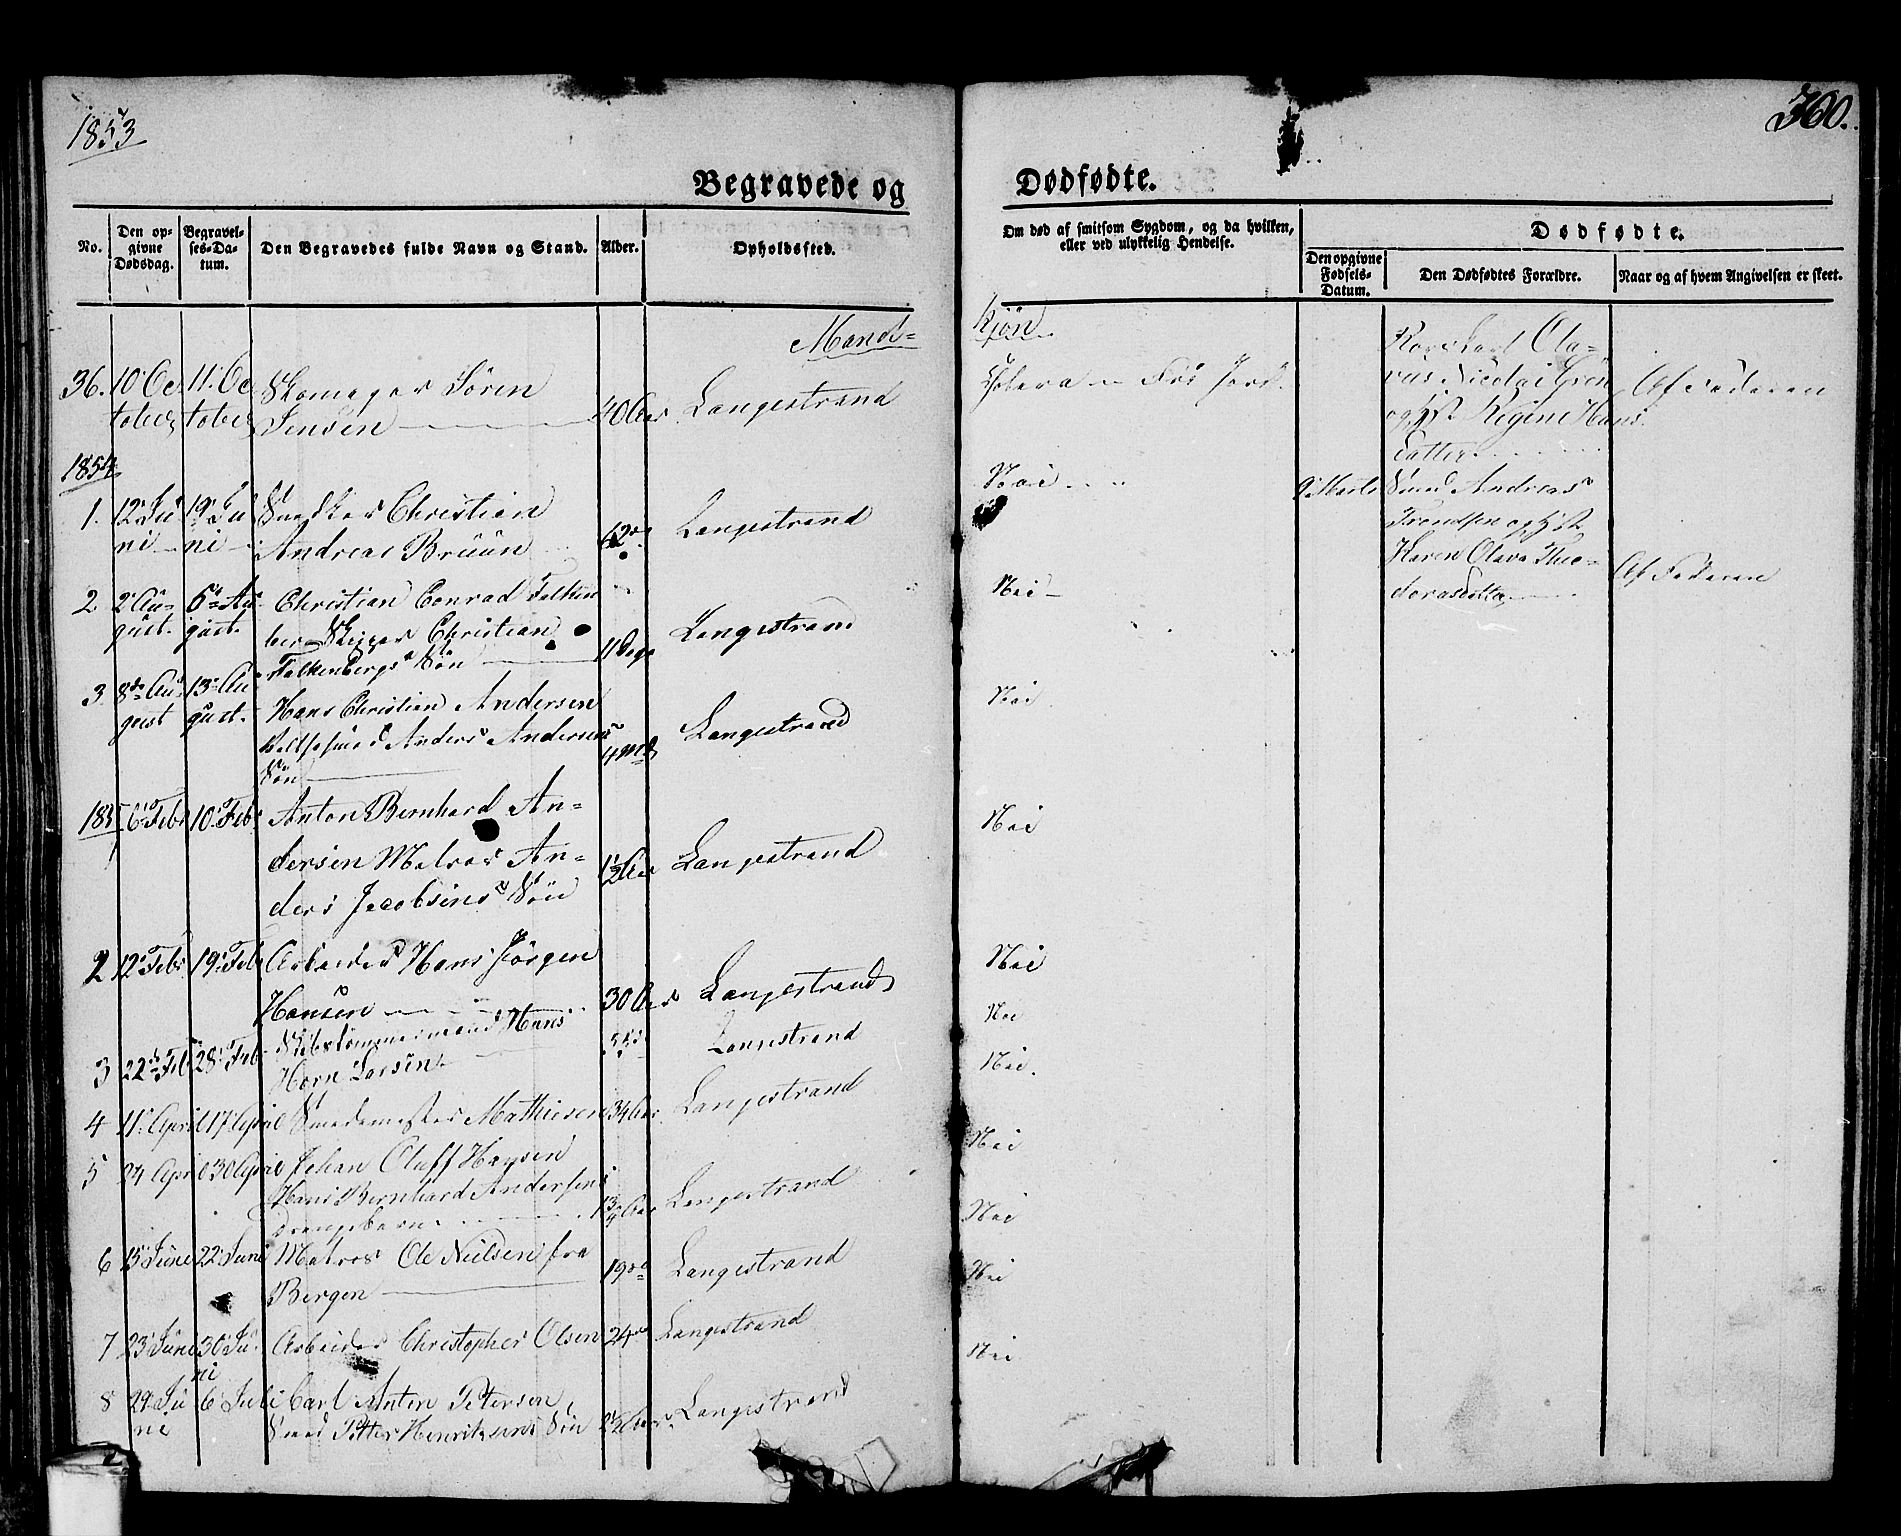 1853
360.
Begravede og
Dødfødte.
No.
Den op-
givne
Dødsdag.
Begravel-
ses-Da-
tum.
Den Begravedes fulde Navn og Stand.
Alder.
Opholdssted.
Om død af smitsom Sygdom, og da hvilken,
eller ved ulykkelig Hendelse.
Dødfødte.
Den opgivne
Fødsels-
Datum.
Den Dødfødtes Forældre.
Naar og af hvem Angivelsen er skeet.
Mand-
Kjön
36. 10 Oc- 11 Oc- Skomager Sören
tober tober Jensen 40 Aar Langestrand
Cholera
Ola-
vus Nicolai
Regine Hans
datter
Af Faderen
1854
1. 12 Ju 19 Ju Snedker Christian
ni ni Andreas Brüün 62 Langestrand
Nei
Smed Andreas
Trondsen og
Karen Olava Theo-
dorasdatter
Af Faderen
2 2 Au- 6 Au- Christian Conrad Falken
gust. gust. ber Skipper Christian
Falkenbergs Sön 11 Dage Langestrand
Nei
3 8 Au 13 Au Hans Christian Andersen
gust gust. Anders Andersens
Sön 4 Md Langestrand
Nei
1855
6 Febr 10 Febr Anton Bernhard An-
dersen Matros An-
ders Jacobsens Sön 1½ Aar Langestrand
Nei
2 12 Febr 19 Feb Arbeider Hans Jörgen
Hansen 30 Aar Langestrand
Nei
3 22 Feb 28 Feb Skibstömmermand Hans
Horn Larsen Langestrand
Nei
4 11 April 17 April Smedemester Mathiesen 34 Aar Langestrand
Nei
5 24 April 30 April Johan Oluff Hansen
Hans Bernhard Andersens
Drengebarn 1¾ Aar Langestrand
Nei
6 15 June 22 Juni Matros Ole Nielsen fra
Bergen 19 Langestrand
Nei
7 23 June 30 Ju- Arbeider Christopher Olsen 24 Langestrand
ni
Nei
8 29 Ju 6 Juli Carl Anton Petersen,
ni Smed Petter Henriksens Sön 2½ Aar Langestrand
Nei